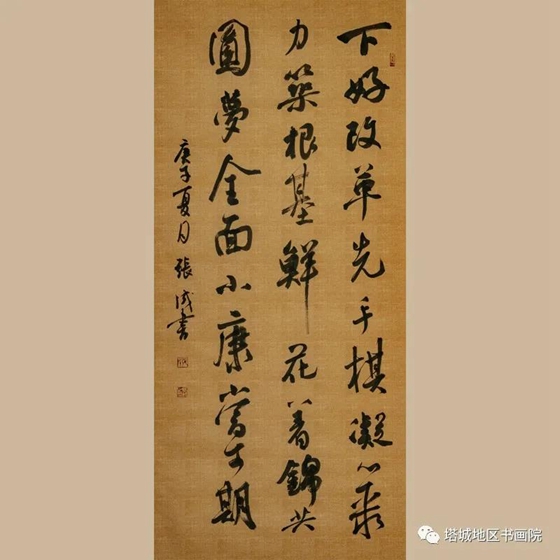 下好改革先手棋凝心聚
力築根基鮮花着錦共
圓夢全面小康當期
庚子夏月張成書
塔城地区书画院